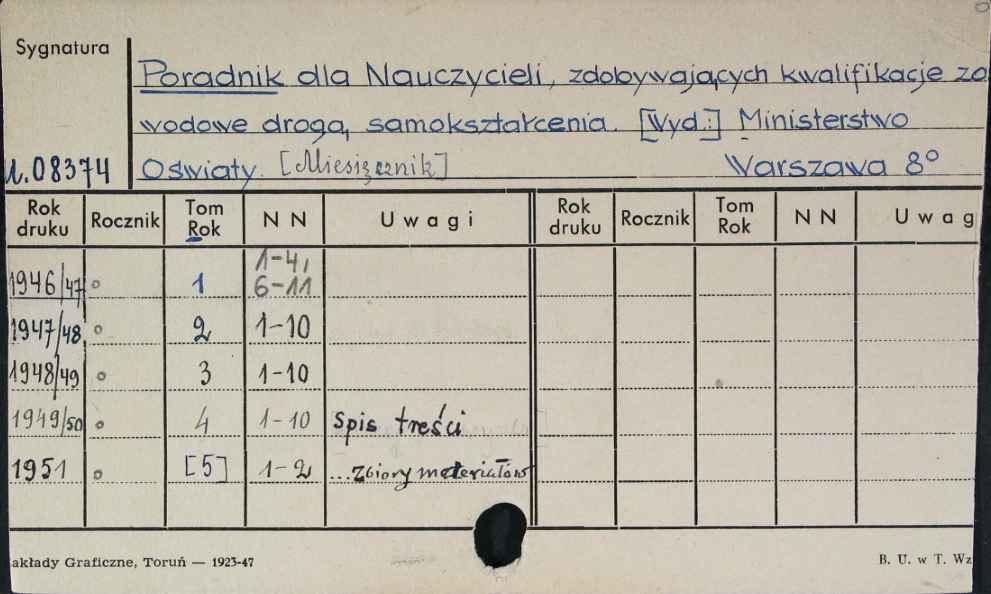 Sygnatura
Poradnik dla Nauczycieli, zdobywających kwalifikacje za
wodowe drogą samokształcenia. [Wyd.:] Ministerstwo
Oświaty. [Miesięcznik] Warszawa 8°
U.08374
Rok druku Rocznik Tom Rok N N Uwagi Rok druku Rocznik Tom Rok N N Uwag
1946/47 ° 1 1-4, 6-11
1947/48 ° 2 1-10
1948/49 ° 3 1-10
1949/50 ° 4 1-10 Spis treści
1951 ° [5] 1-2 ...zbiory materiałów
akłady Graficzne, Toruń — 1923-47 B. U. w T. Wz